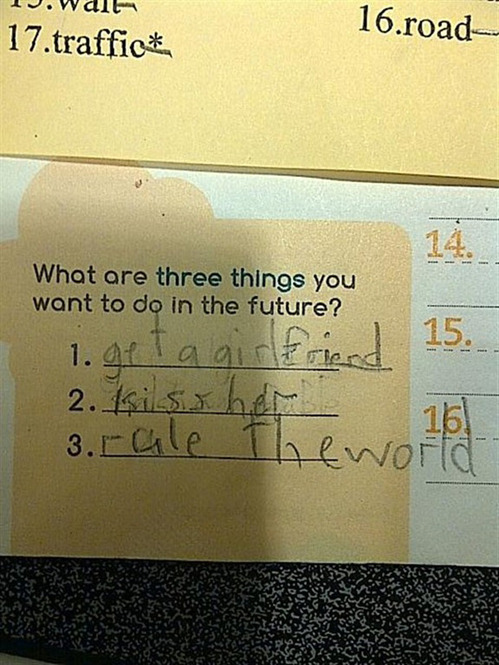 15.wait
16.road
17.traffic*
14.
What are three things you
want to do in the future?
15.
1. get a girlfriend
2. kiss her
16.
3. rule the world